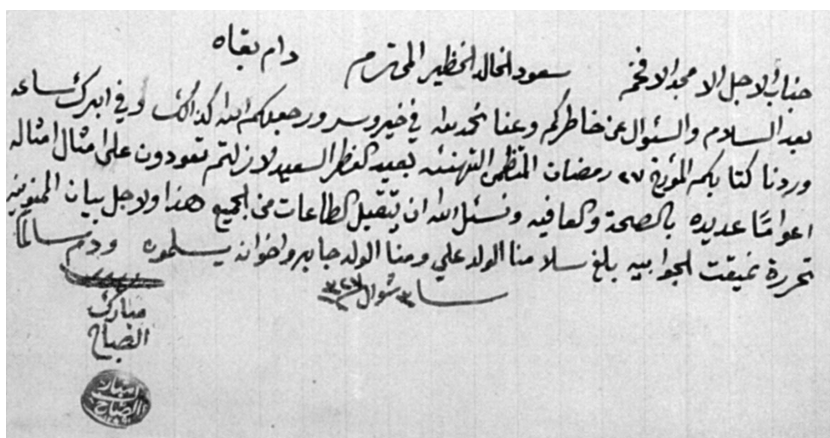 جناب الاجل الامجد الافخم سعود الخالد الخضير المحترم دام بقاه
بعد السلام والسئوال عن خاطركم وعنا نحمد الله في خير وسرور جعلكم الله كذالك وفي ابرك ساعه
وردنا كتابكم المؤرخ ٢٧ رمضان المتظمن التهنئه بعيد الفطر السعيد لازلتم تعودون على امثال امثاله
اعوامًا عديده بالصحة والعافيه ونسئل الله ان يتقبل الطاعات من الجميع هذا ولاجل بيان الممنونيه
تحررة نميقت الجوابيه بلغ سلامنا الولد علي ومنا الولد جابر واخوانه يسلمون ودم سالمًا
٣ شوال ٣٢٧
مبارك
الصباح
مبارك
الصباح